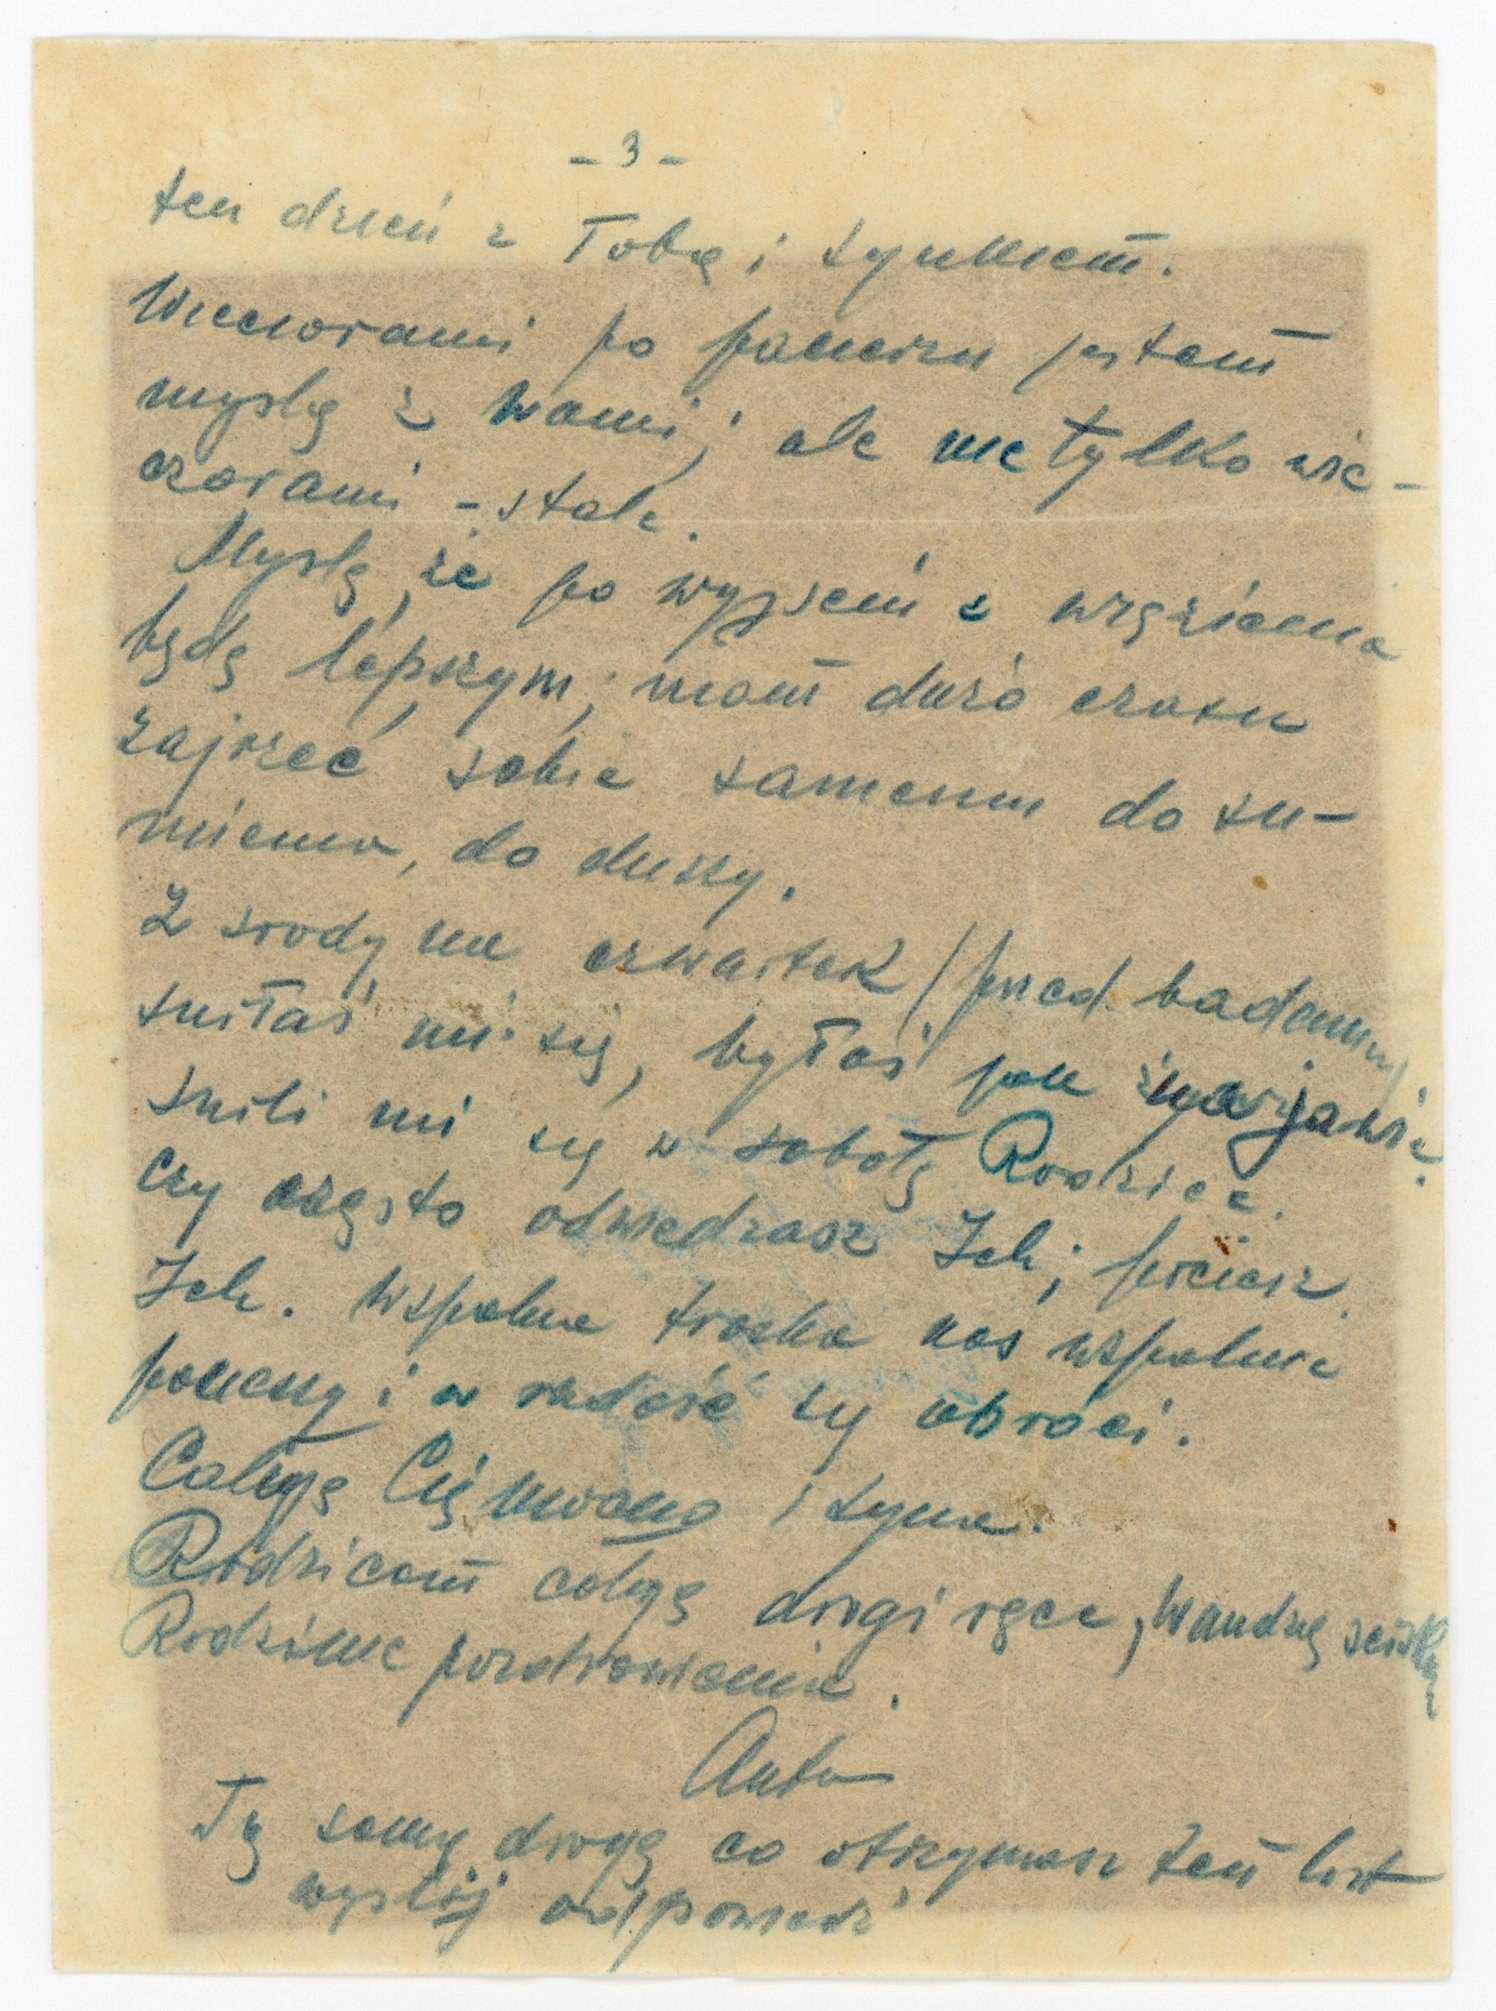 - 3 -
ten dzień z Tobą i synkiem.
Wieczorami po pacierzu jestem
myślą z Wami; ale nie tylko wie-
czorami - stale.
Myslę, że po wyjściu z więzienia
będę lepszym; mam dużo czasu
zajrzeć sobie samemu do su-
mienia, do duszy.
Z srody na czwartek /przed badaniem/
sniłaś mi się, byłaś jak na jawie.
Snili mi się w sobotę Rodzice.
Czy często odwiedzasz Ich; pociesz
Ich. Wspolna troska nas wspolnie
połączy i w radość się obróci.
Całuję Cię mocno i syna.
Rodzicom całuję drogi ręce, Wandzię sciskam
Rodzinie pozdrowienia.
Antu
Tą samą drogą co otrzymasz ten list
wyslij odpowiedź